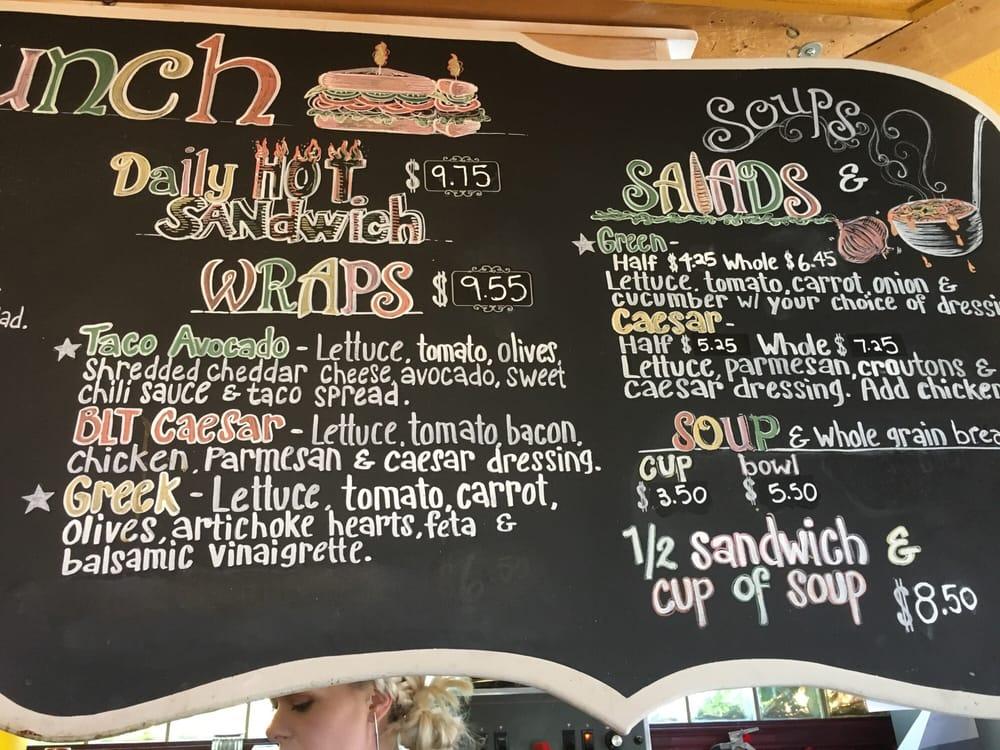 unch
Daily HOT
SANdwich
$ 9.75
WRAPS $ 9.55
ad.
Taco Avocado - Lettuce, tomato, olives,
shredded cheddar cheese, avocado, sweet
chili sauce & taco spread.
BLT Caesar - Lettuce, tomato, bacon,
chicken, Parmesan & caesar dressing.
Greek - Lettuce, tomato, carrot,
olives, artichoke hearts, feta &
balsamic vinaigrette.
Soups
SAlADS &
Green -
Half $4.25 Whole $6.45
Lettuce, tomato, carrot, onion &
cucumber w/ your choice of dressi
Caesar -
Half $ 5.25 Whole $ 7.25
Lettuce, parmesan, croutons &
caesar dressing. Add chicken
SOUP & whole grain brea
cup bowl
$ 3.50 $ 5.50
1/2 sandwich &
cup of soup $8.50